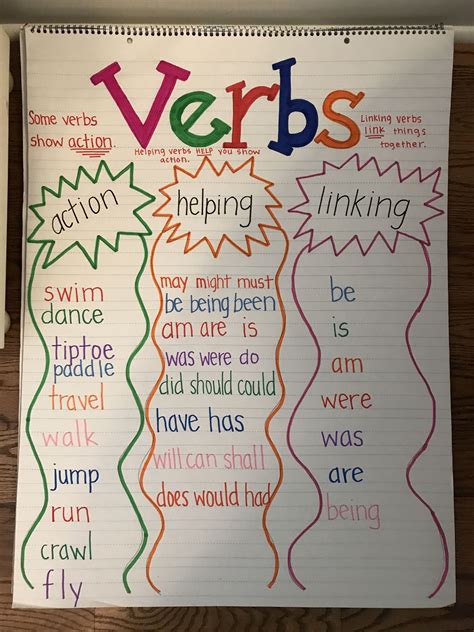 Verbs
Some verbs
show action.
Helping verbs HELP you show
action.
Linking verbs
link things
together.
action
swim
dance
tiptoe
paddle
travel
walk
jump
run
crawl
fly
helping
may might must
be being been
am are is
was were do
did should could
have has
will can shall
does would had
linking
be
is
am
were
was
are
being